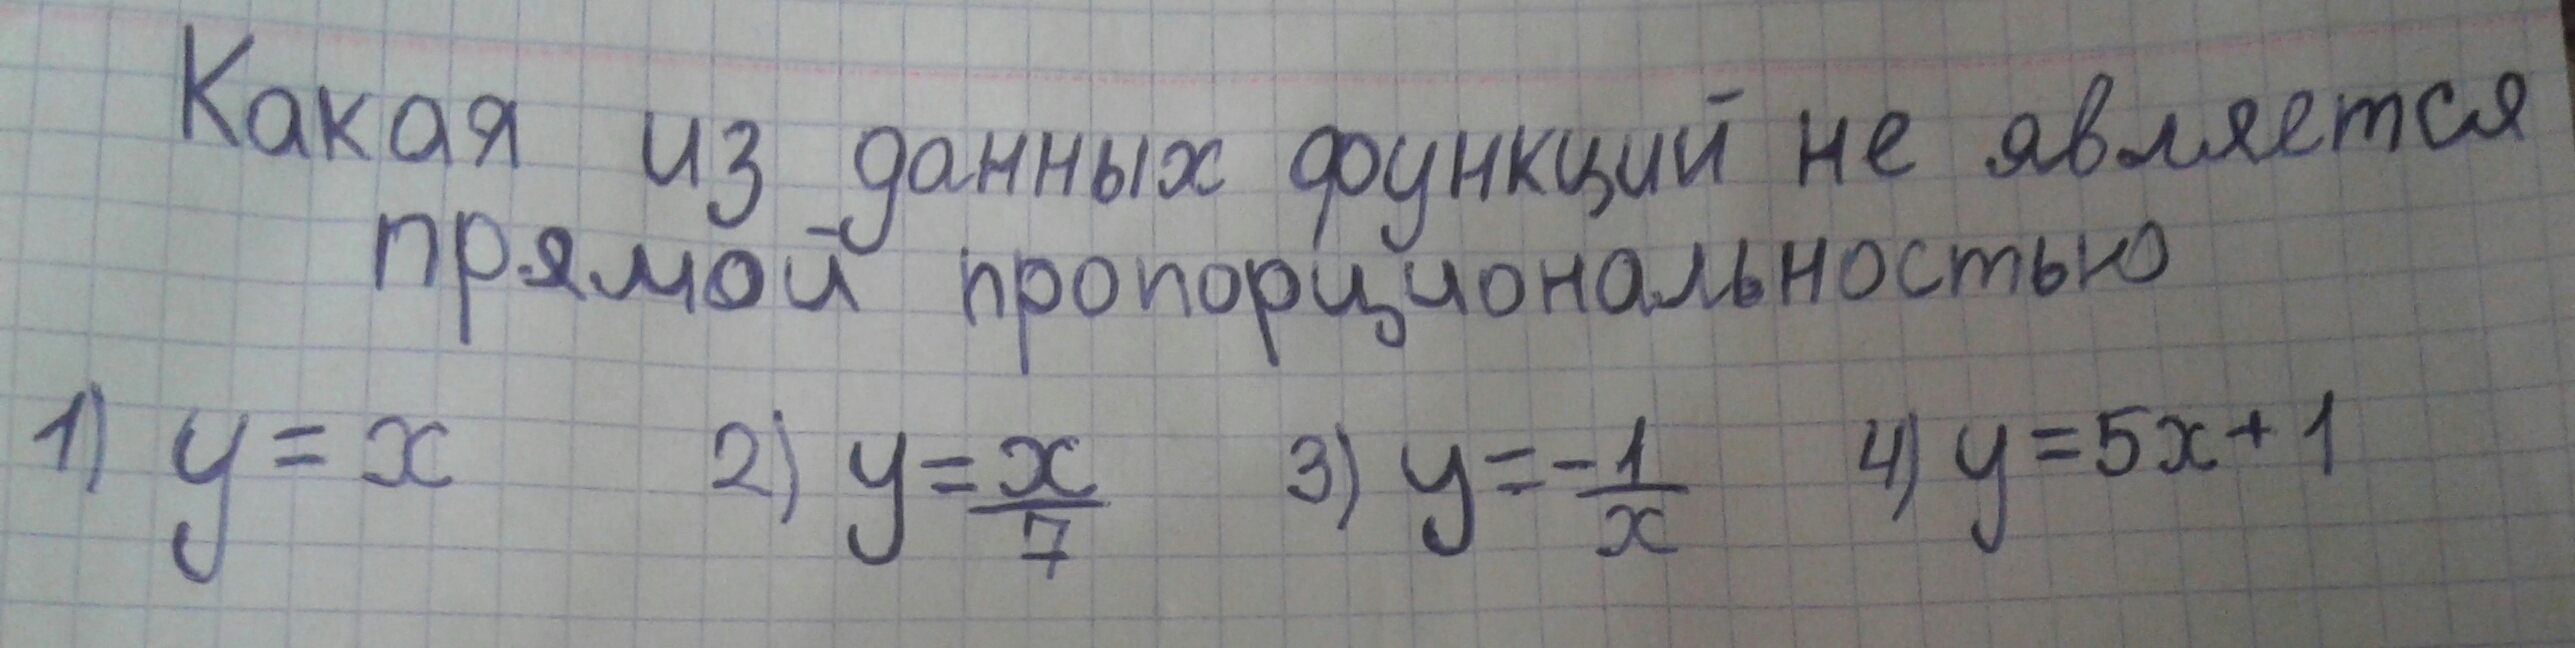 Какая из данных функций не является
прямой пропорциональностью
1) y = x 2) y = x/7 3) y = -1/x 4) y = 5x + 1